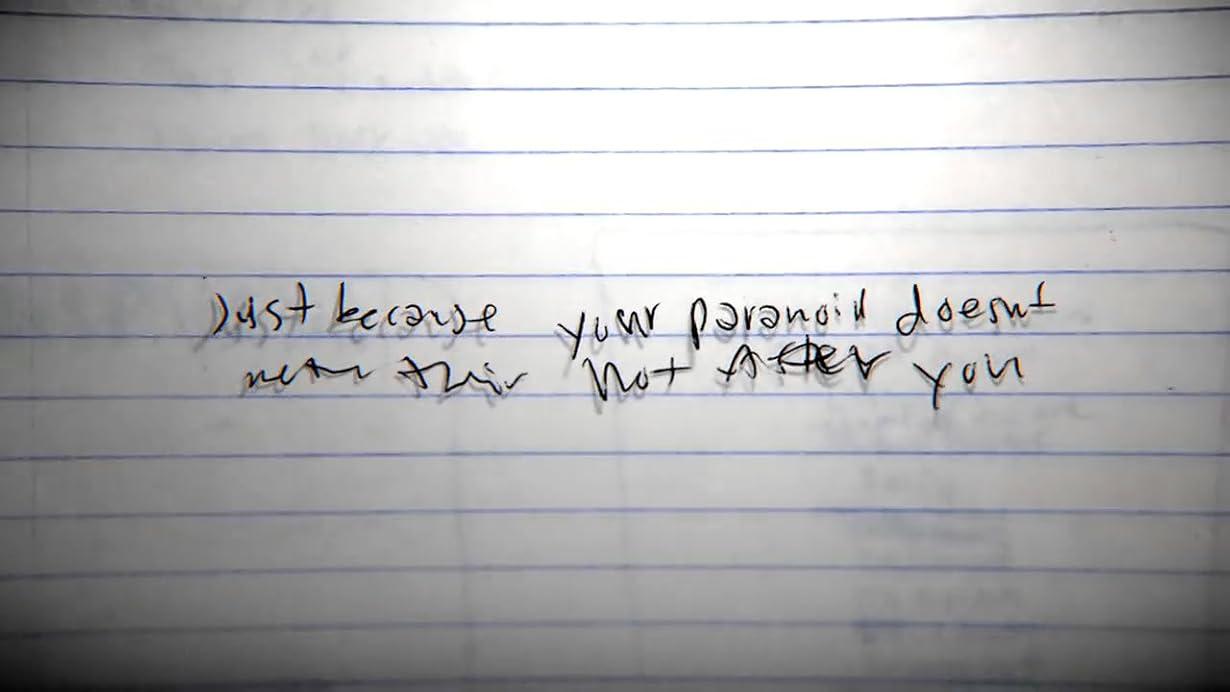 Just because your paranoid doesnt
mean their not After you